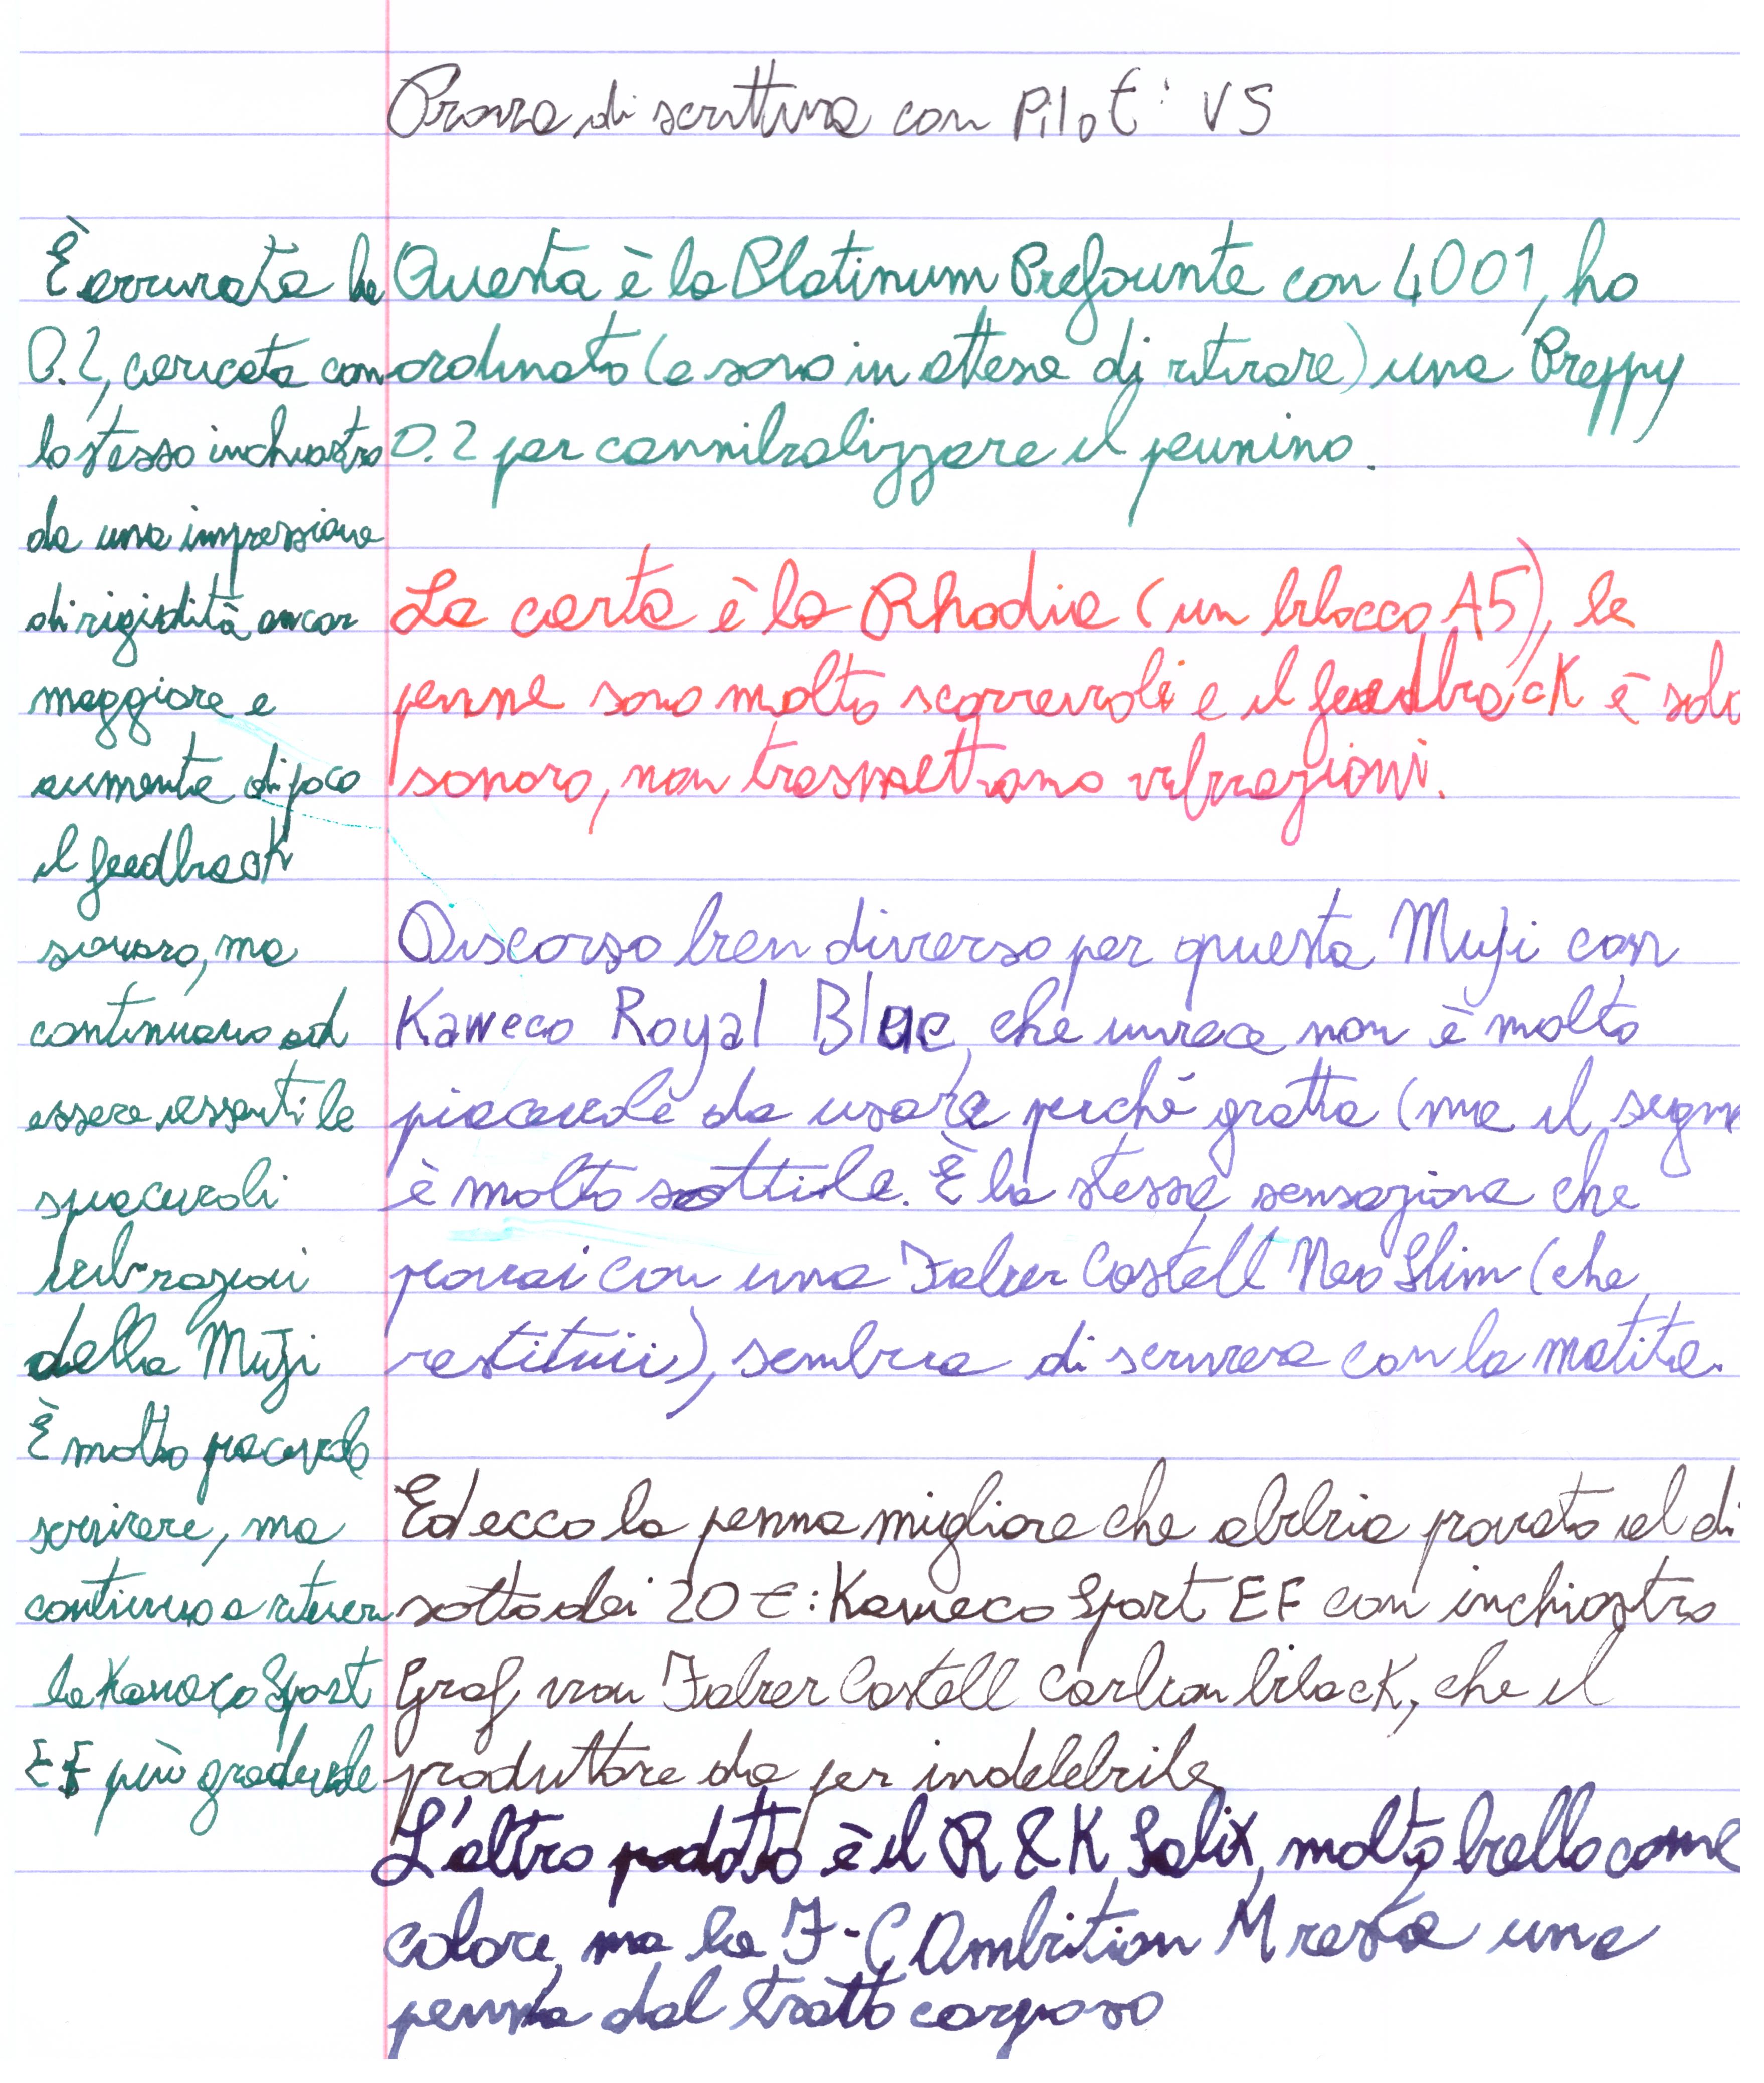 Prova di scrittura con Pilot: V5
Questa è la Platinum Prefounte con 4001, ho
ordinato (e sono in attesa di ritirare) una Preppy
0.2 per cannibalizzare il pennino.
La carta è la Rhodia (un blocco A5), le
penne sono molto scorrevoli e il feedback è solo
sonoro, non trasmettono vibrazioni.
Discorso ben diverso per questa Muji con
Kaweco Royal Blue, che invece non è molto
piacevole da usare perché gratta (ma il segno
è molto sottile. È la stessa sensazione che
provai con una Faber Castell Neo Slim (che
restituii), sembra di scrivere con la matita.
Ed ecco la penna migliore che abbia provato al di
sotto dei 20 €: Kaweco Sport EF con inchiostro
Graf von Faber Castell Carbon black, che il
produttore da per indelebile
L'altro prodotto è il R & K Salix, molto bello come
colore, ma la F-C Ambition M resta una
penna dal tratto corposo
È arrivata la
0.2, caricata con
lo stesso inchiostro
da una impressione
di rigidità ancor
maggiore e
aumenta di poco
il feedback
sonoro, ma
continuano ad
essere assenti le
spiacevoli
vibrazioni
della Muji
È molto piacevole
scrivere, ma
continuo a ritenere
la Kaweco Sport
EF più gradevole